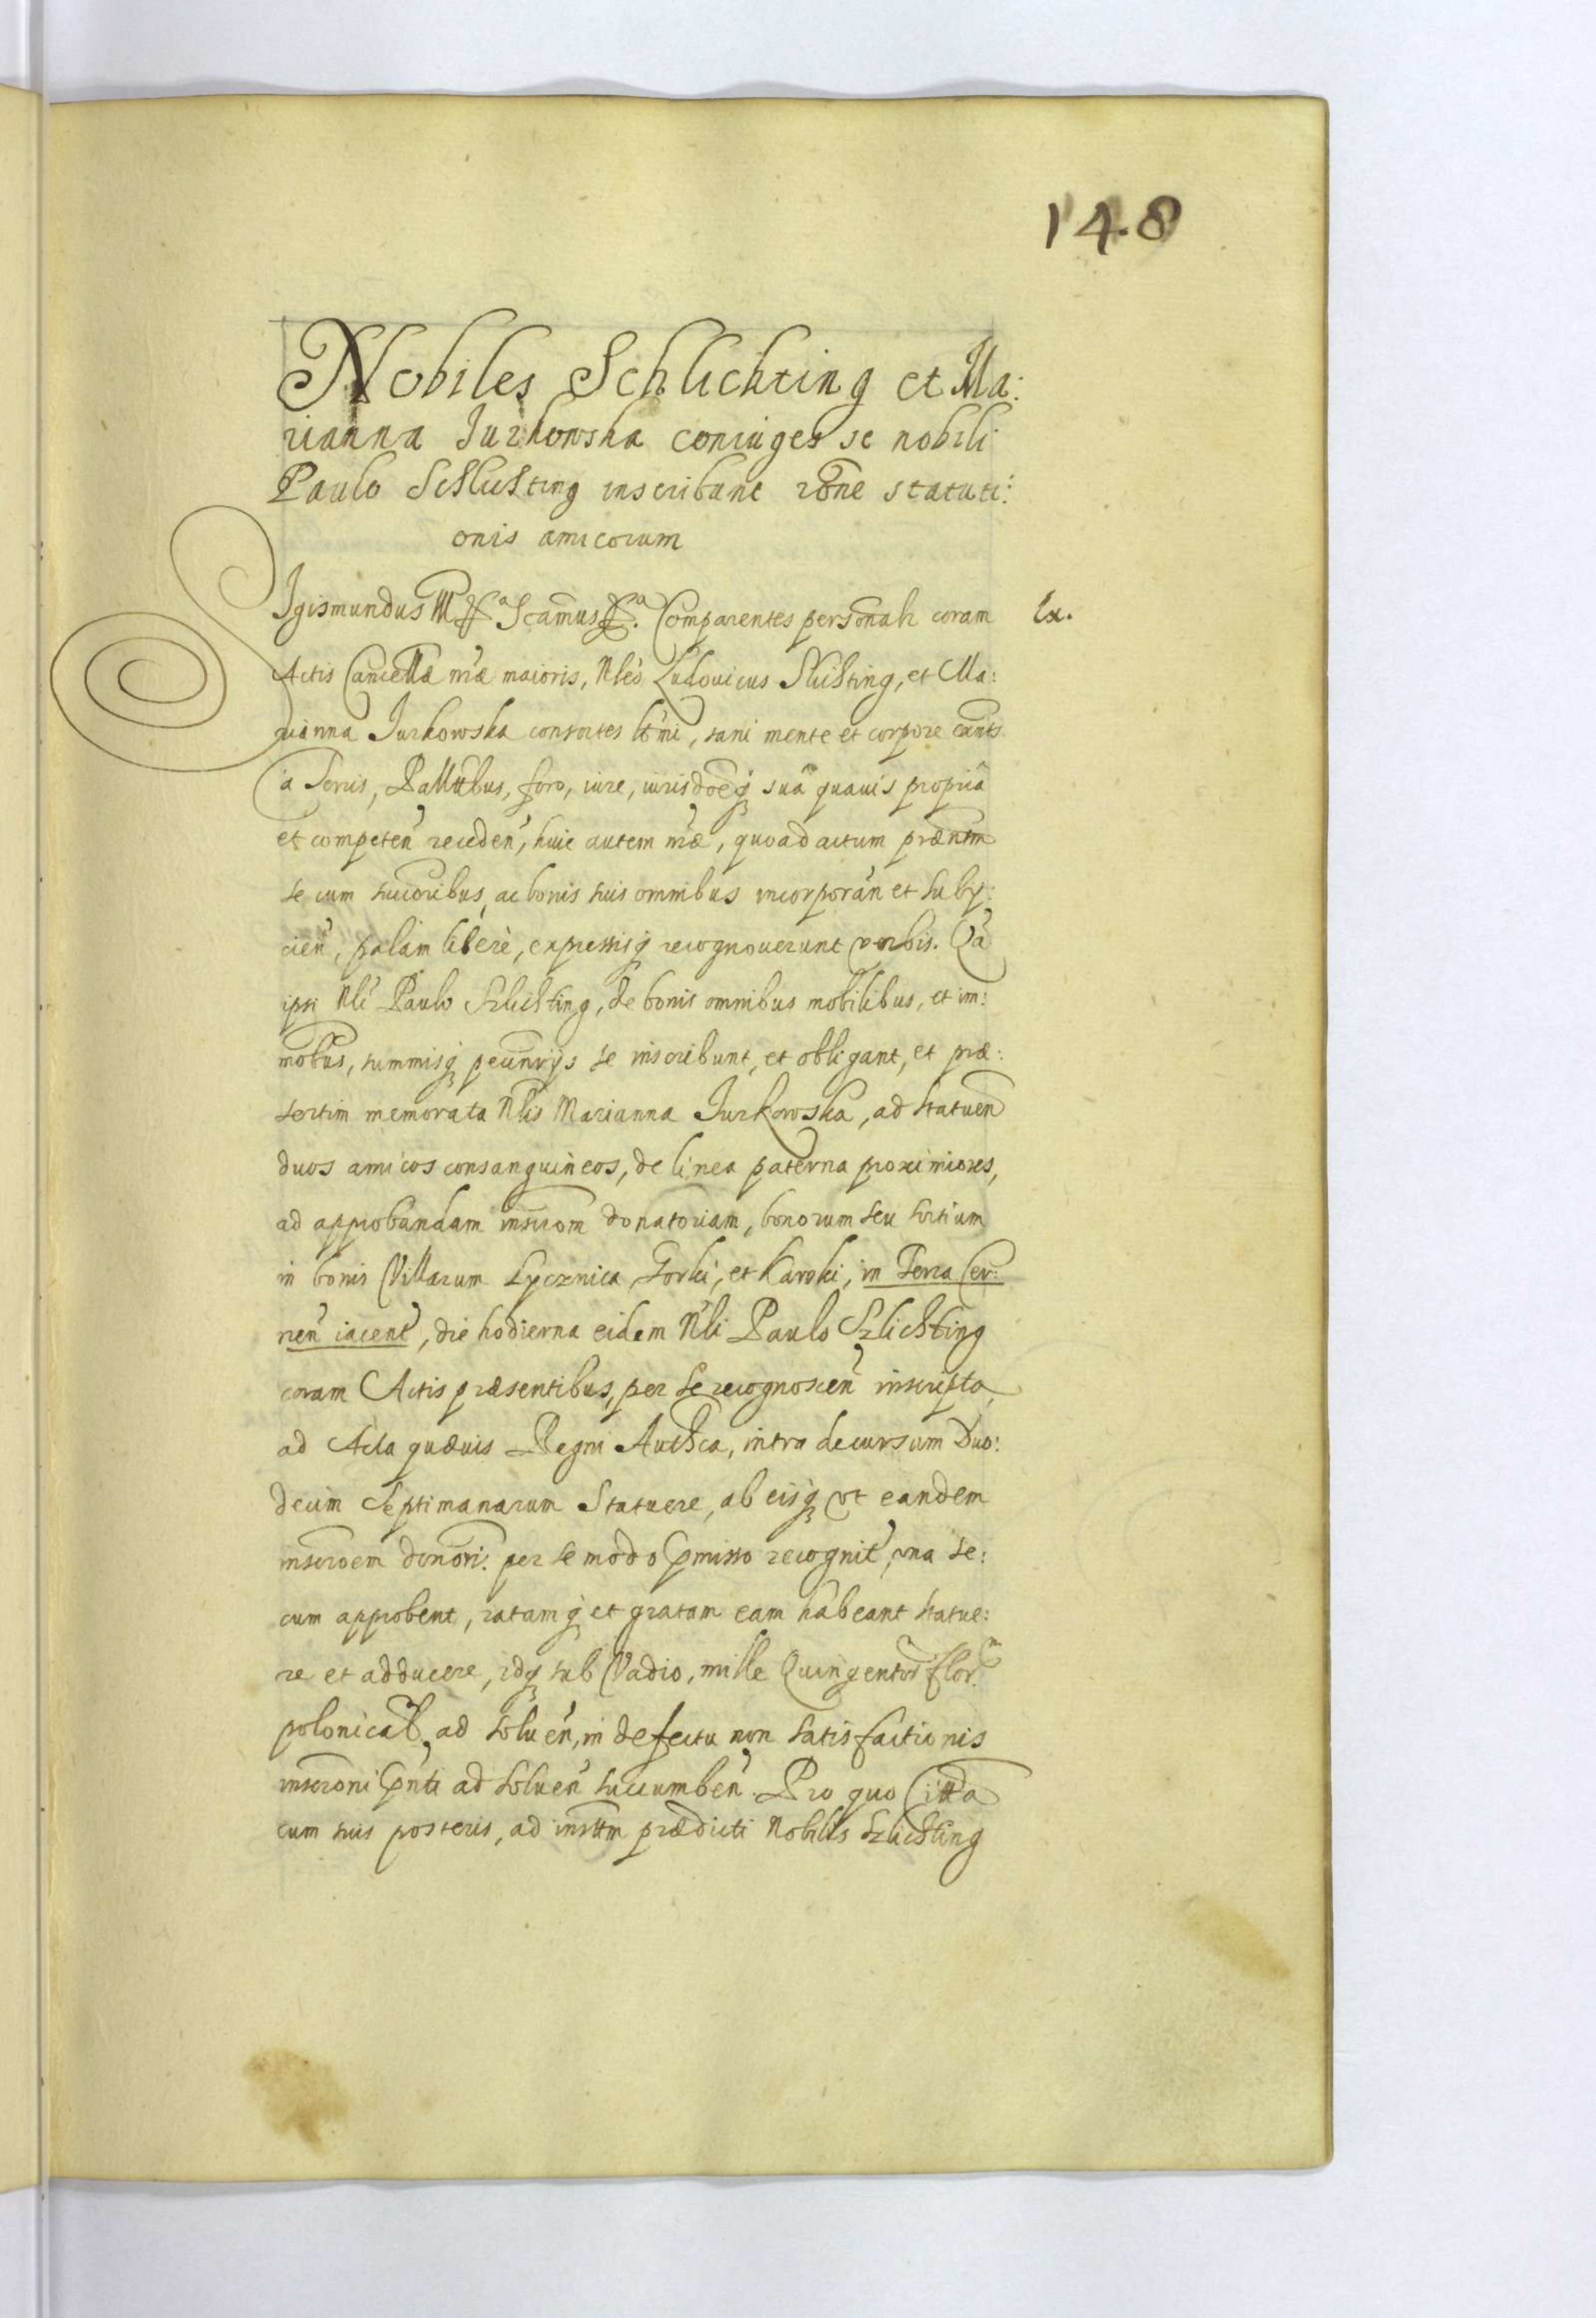 148
Nobiles Schlichting et Ma:
rianna Jurkowska coniuges se nobili
Paulo Schlichting inscribunt rōne statuti:
onis amicorum
Sigismundus III &a Scamus &a. Comparentes personalr coram
Ex.
Actis Cancellæ nr̄æ maioris, Nles Ludovicus Slichting, et Ma:
rianna Jurkowska consortes ltmi, sani mente et corpore exnts
a Terris, Pallttbus, foro, iure, iurisdoēq₃ suâ quauis propriâ
et competen̄ receden̄, huic autem nr̄æ, quoad actum præntm
se cum succoribus, ac bonis suis omnibus incorporan̄ et subij:
cien̄, palàm liberè, expressisq₃ recognouerunt verbis. Qā
ipsi Nli Paulo Szlichting, de bonis omnibus mobilibus, et im:
mobus, summisq₃ pecunrijs se inscribunt, et obligant, et præ:
sertim memorata Nlis Marianna Jurkowska, ad statuen̄
duos amicos consanguineos, de linea paterna proximiores,
ad approbandam inscrom donatoriam, bonorum seu sortium
in bonis Villarum Lycznica, Gorki, et Karoki, in Terra Cer:
nen̄ iacent̄, die hodierna eidem Nli Paulo Szlichting
coram Actis præsentibus, per se recognoscen̄ inscripta,
ad Acta quævis Regni Authca, intra decursum Duo:
decim Septimanarum Statuere, ab eisq₃ vt eandem
inscroem donori: per se modo pmisso recognit̄, vna se:
cum approbent, ratamq₃ et gratam eam habeant statue:
re et adducere, idq₃ sub Vadio, mille Quingentor Flor.
polonical, ad soluen̄, in defectu non satisfactionis
inscroni pnti ad soluen̄ succumben̄. Pro quo Citta
cum suis posteris, ad insttm prædicti Nobilis Szlichting